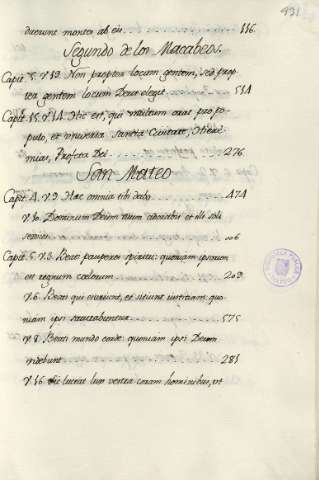 931
ducunt montes ab eis 116.
Segundo de los Macabeos.
Capit. 5. V. 19. Non propter locum gentem, sed prop
ter gentem locum Deus elegit 514
Capit. 15. V. 14. Hic est, qui multum orat pro po-
pulo, et universa sancta Civitate, Hiere-
mias, Profeta Dei 276
San Mateo
Capit. 4. V. 9. Haec omnia tibi dabo 474
V. 10. Dominum Deum tuum adorabis et illi soli
servies 006
Capit. 5. V. 3. Beati pauperes spiritu: quoniam ipsorum
est regnum coelorum 209
V. 6. Beati qui esuriunt, et sitiunt iustitiam: quo-
niam ipsi saturabuntur 575
V. 8. Beati mundo corde: quoniam ipsi Deum
videbunt 281
V. 16. Sic luceat lux vestra coram hominibus, ut